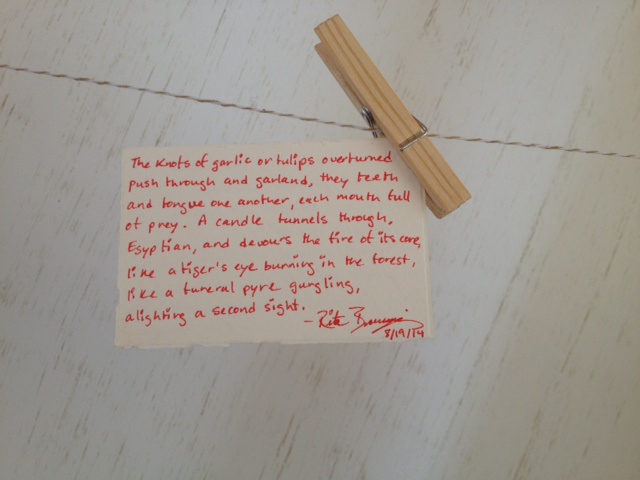 The Knots of garlic or tulips overturned
push through and garland, they teeth
and tongue one another, each mouth full
of prey. A candle tunnels through,
Egyptian, and devours the fire of its core,
like a tiger's eye burning in the forest,
like a funeral pyre gurgling,
alighting a second sight.
- Rita
8/19/14